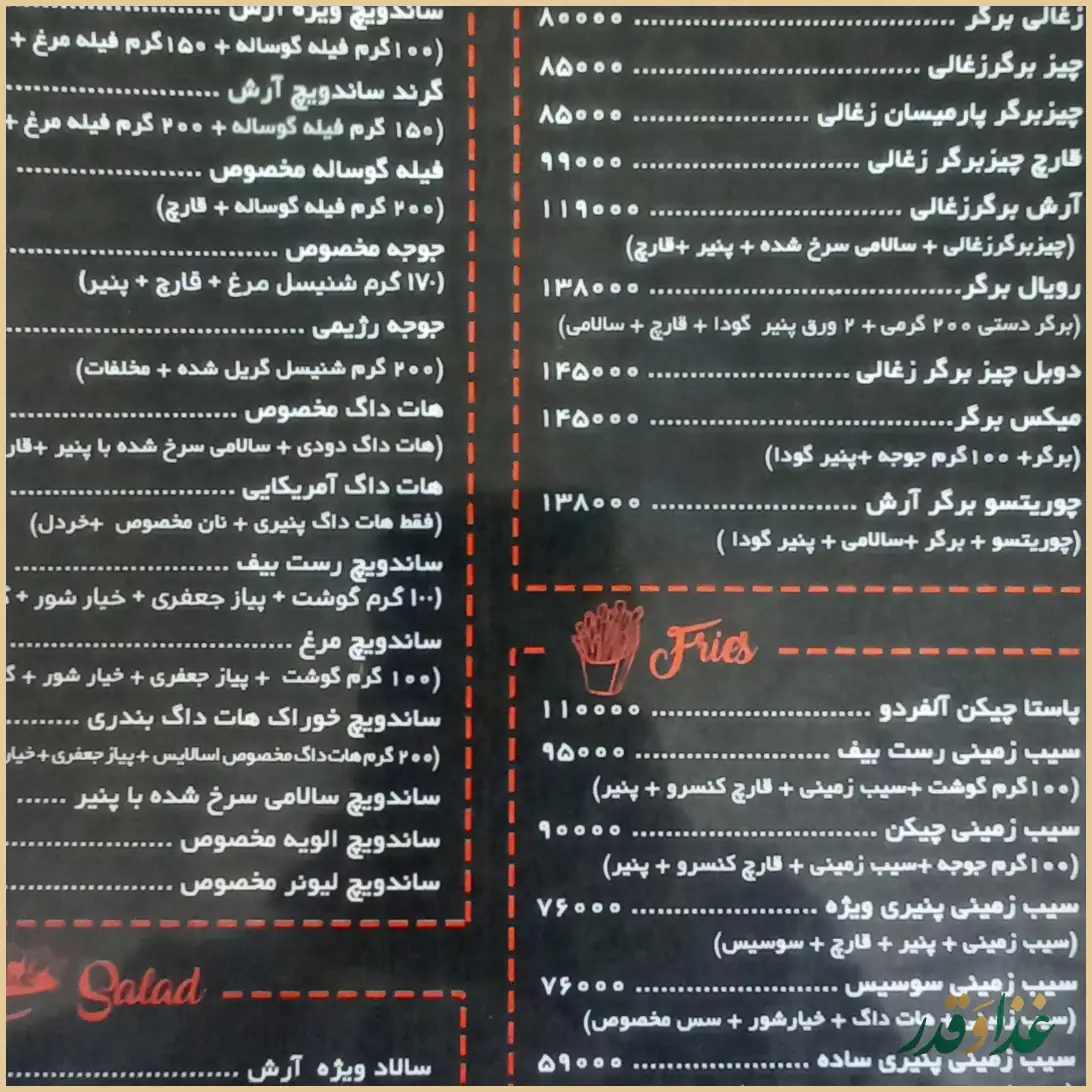 زغالی برگر ........ ۸۰۰۰۰
چیز برگرزغالی ........ ۸۵۰۰۰
چیزبرگر پارمیسان زغالی ........ ۸۵۰۰۰
قارچ چیزبرگر زغالی ........ ۹۹۰۰۰
آرش برگرزغالی ........ ۱۱۹۰۰۰
(چیزبرگرزغالی + سالامی سرخ شده + پنیر +قارچ)
رویال برگر ........ ۱۳۸۰۰۰
(برگر دستی ۲۰۰ گرمی + ۲ ورق پنیر گودا + قارچ + سالامی)
دوبل چیز برگر زغالی ........ ۱۴۵۰۰۰
میکس برگر ........ ۱۴۵۰۰۰
(برگر+ ۱۰۰گرم جوجه +پنیر گودا)
چوریتسو برگر آرش ........ ۱۳۸۰۰۰
(چوریتسو + برگر +سالامی + پنیر گودا )
Fries
پاستا چیکن آلفردو ........ ۱۱۰۰۰۰
سیب زمینی رست بیف ........ ۹۵۰۰۰
(۱۰۰گرم گوشت +سیب زمینی + قارچ کنسرو + پنیر)
سیب زمینی چیکن ........ ۹۰۰۰۰
(۱۰۰گرم جوجه +سیب زمینی + قارچ کنسرو + پنیر)
سیب زمینی پنیری ویژه ........ ۷۶۰۰۰
(سیب زمینی + پنیر + قارچ + سوسیس)
سیب زمینی سوسیس ........ ۷۶۰۰۰
(سیب زمینی + هات داگ + خیارشور + سس مخصوص)
سیب زمینی پنیری ساده ........ ۵۹۰۰۰
ساندویچ ویژه آرش
(۱۰۰گرم فیله گوساله + ۱۵۰گرم فیله مرغ +
گرند ساندویچ آرش ........
(۱۵۰ گرم فیله گوساله + ۲۰۰ گرم فیله مرغ +
فیله گوساله مخصوص ........
(۲۰۰ گرم فیله گوساله + قارچ)
جوجه مخصوص ........
(۱۷۰ گرم شنیسل مرغ + قارچ + پنیر)
جوجه رژیمی ........
(۲۰۰ گرم شنیسل گریل شده + مخلفات)
هات داگ مخصوص ........
(هات داگ دودی + سالامی سرخ شده با پنیر +قار
هات داگ آمریکایی ........
(فقط هات داگ پنیری + نان مخصوص +خردل)
ساندویچ رست بیف ........
(۱۰۰ گرم گوشت + پیاز جعفری + خیار شور +
ساندویچ مرغ ........
(۱۰۰ گرم گوشت + پیاز جعفری + خیار شور +
ساندویچ خوراک هات داگ بندری ........
(۲۰۰ گرم هات‌داگ مخصوص اسالایس +پیاز جعفری +خیار
ساندویچ سالامی سرخ شده با پنیر ......
ساندویچ الویه مخصوص ........
ساندویچ لیونر مخصوص ........
Salad
سالاد ویژه آرش ........
غذا و قدر